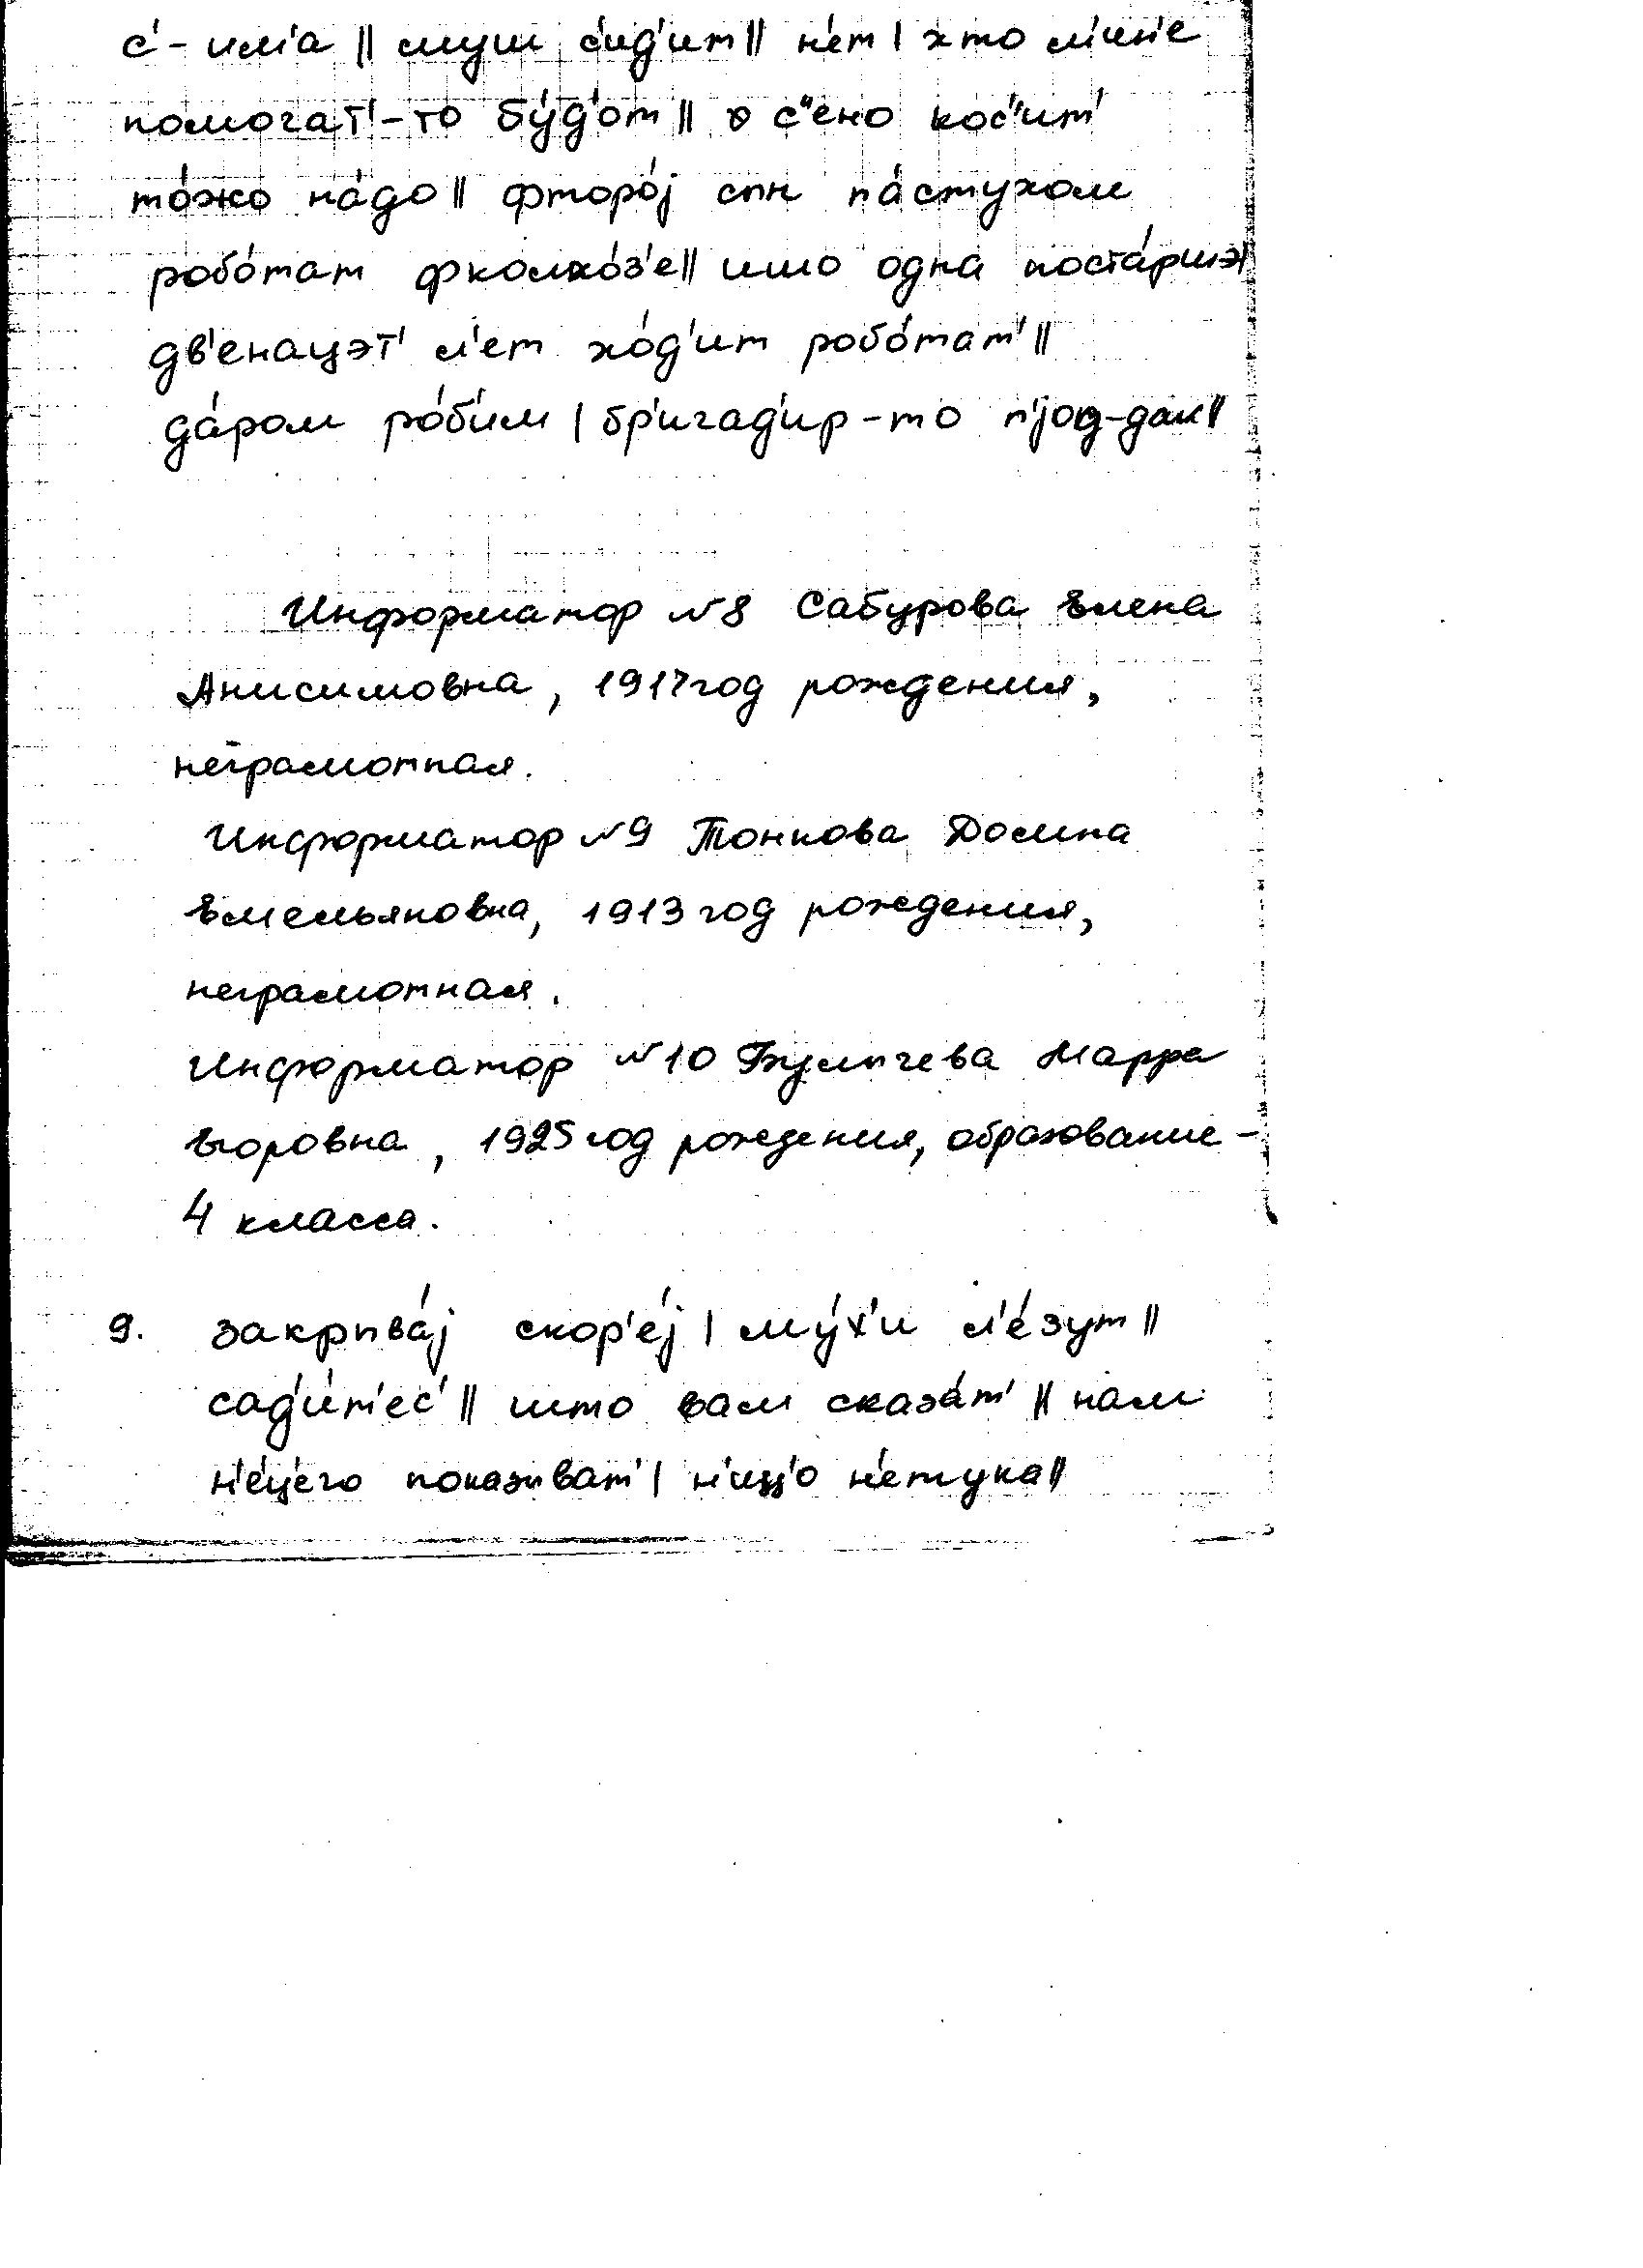 с'-им'а || муш с'ид'ит || н'ет | хто м'ин'е
помогат'-то бу́д'от || с'ено кос'ит'
то́жо на́до || фторо́j сын па́стухом
робо́тат фколхо́з'е || ишо одна поста́ршэ |
дв'енацэт' л'ет хо́д'ит робо́тат' ||
да́ром ро́б'им | бр'игад'ир-то п'jод-дак ||
Информатор №8 Сабурова Елена
Анисимовна, 1917 год рождения,
неграмотная.
Информатор №9 Тонкова Домна
Емельяновна, 1913 год рождения,
неграмотная.
Информатор №10 Булычева Марфа
Егоровна, 1925 год рождения, образование -
4 класса.
9. закрыва́j скор'е́j | му́х'и л'е́зут ||
сад'и́т'ес' || што вам сказа́т' || нам
н'е́ц'его показыват' | н'ищ'о н'етука ||